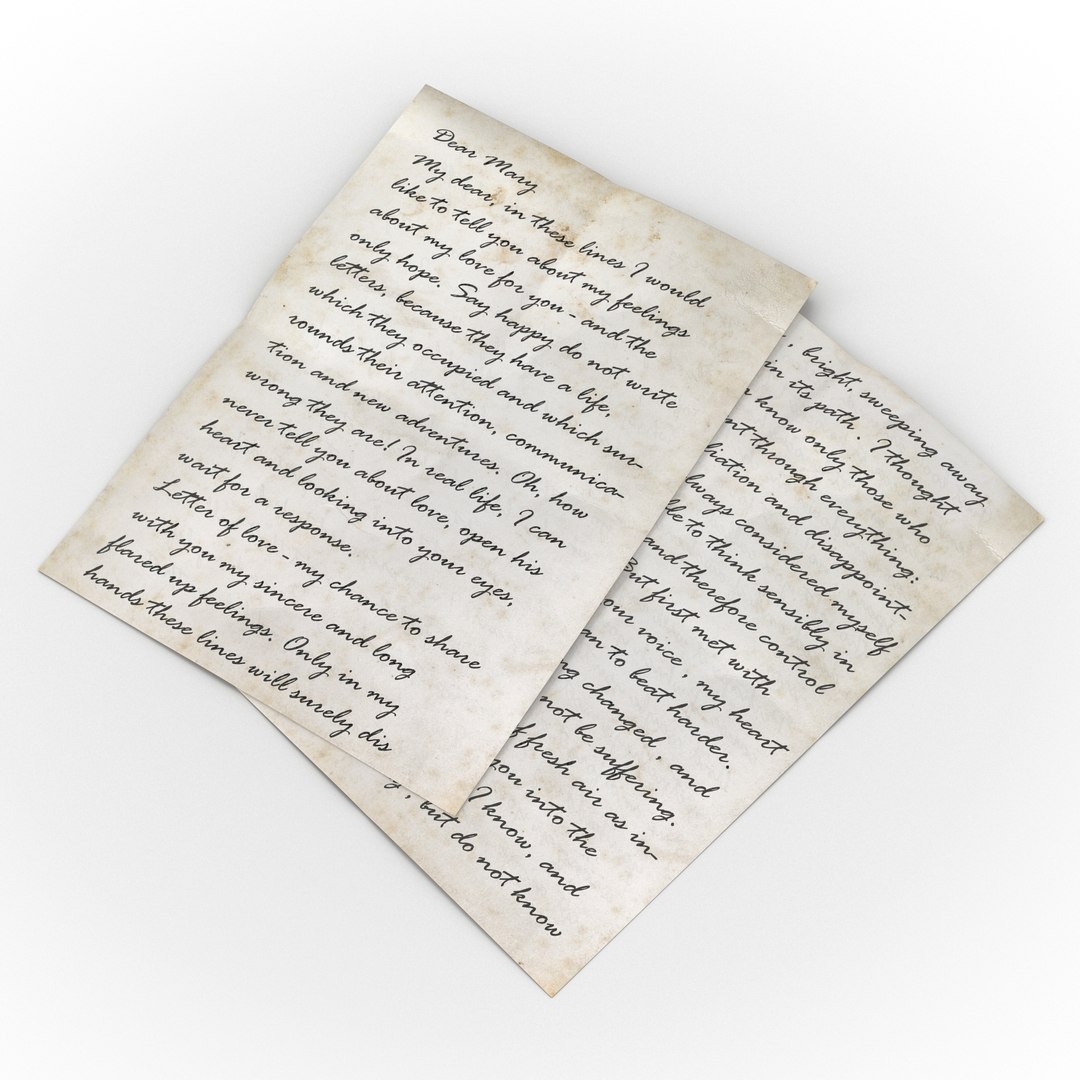 Dear Mary
My dear, in these lines I would
like to tell you about my feelings
about my love for you - and the
only hope. Say happy do not write
letters, because they have a life,
which they occupied and which sur-
rounds their attention, communica-
tion and new adventures. Oh, how
wrong they are! In real life, I can
never tell you about love, open his
heart and looking into your eyes,
wait for a response.
Letter of love - my chance to share
with you my sincere and long
flared up feelings. Only in my
hands these lines will surely dis
, bright, sweeping away
in its path. I thought
know only those who
through everything:
and disappoint-
always considered myself
to think sensibly in
and therefore control
But first met with
your voice, my heart
to beat harder.
changed, and
not be suffering.
of fresh air as in-
you into the
I know, and
, but do not know